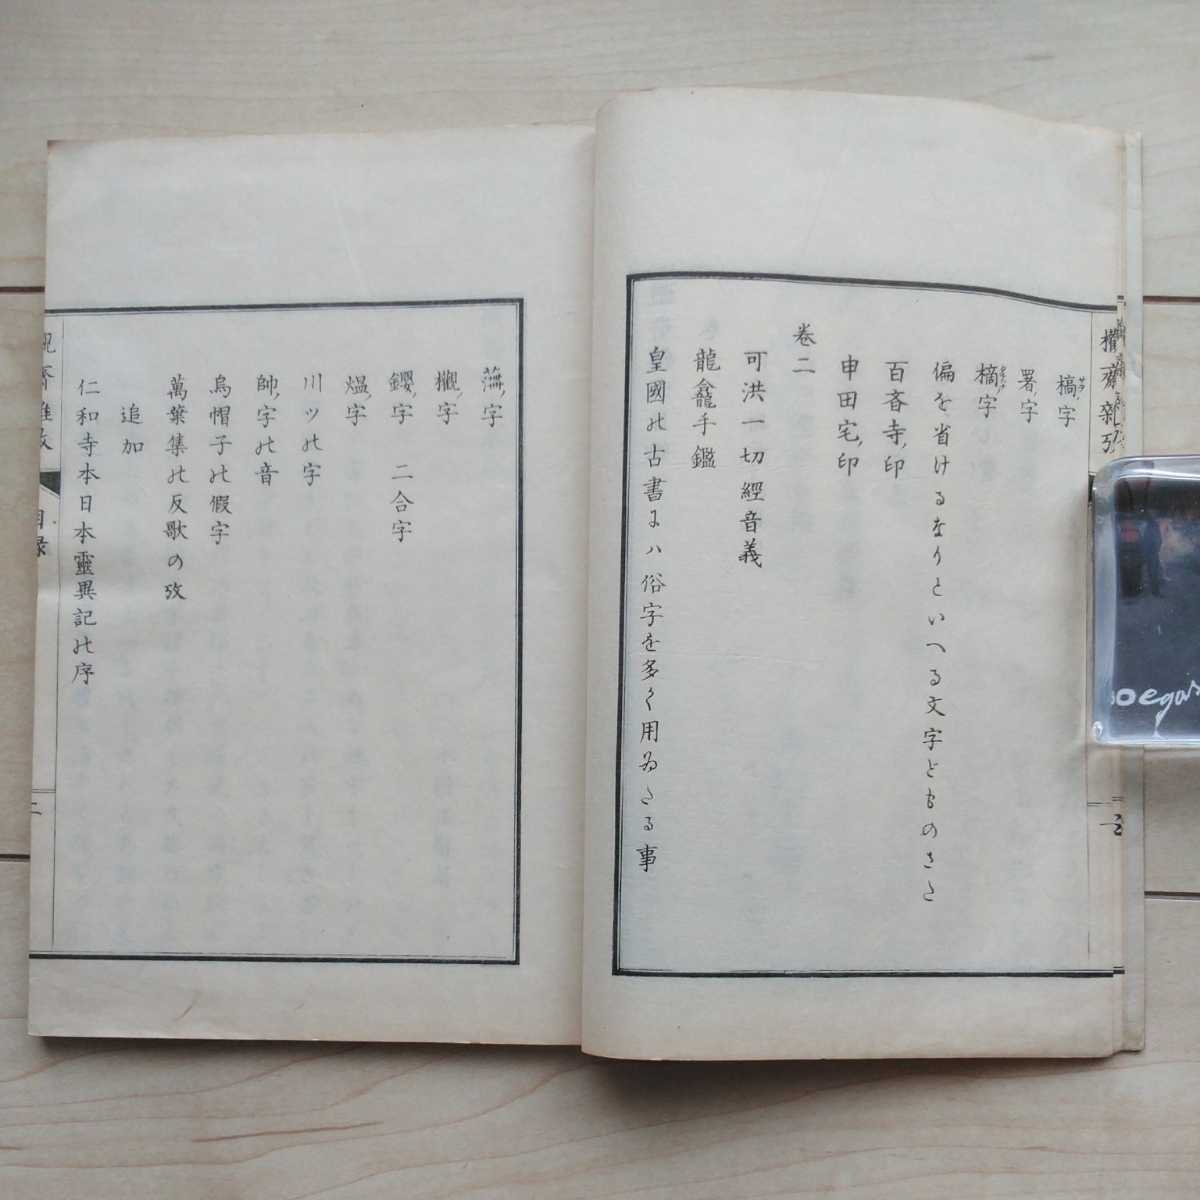 槁ノ字
署ノ字
樀ノ字
偏を省けるなりといへる文字どものさた
百斎寺ノ印
申田宅ノ印
卷二
可洪一切經音義
龍龕手鑑
皇國の古書にハ俗字を多く用ゐたる事
字
欟ノ字
鑁ノ字 二合字
熅ノ字
川ツの字
帥ノ字の音
烏帽子の假字
萬葉集の反歌の攷
追加
仁和寺本日本靈異記の序
目録
二